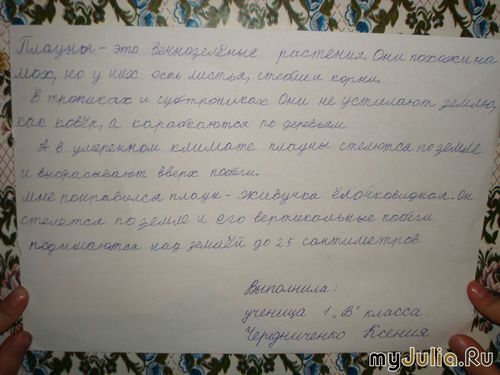 Плауны - это вечнозелёные растения. Они похожи на
мох, но у них есть листья, стебли и корни.
В тропиках и субтропиках они не устилают землю,
как ковёр, а карабкаются по деревьям.
А в умеренном климате плауны стелются по земле
и выбрасывают вверх побеги.
Мне понравился плаун - живучка ёлочковидная. Он
стелется по земле и его вертикальные побеги
поднимаются над землёй до 25 сантиметров.
Выполнила:
ученица 1 „В" класса
Чередниченко Ксения
myJulia.Ru